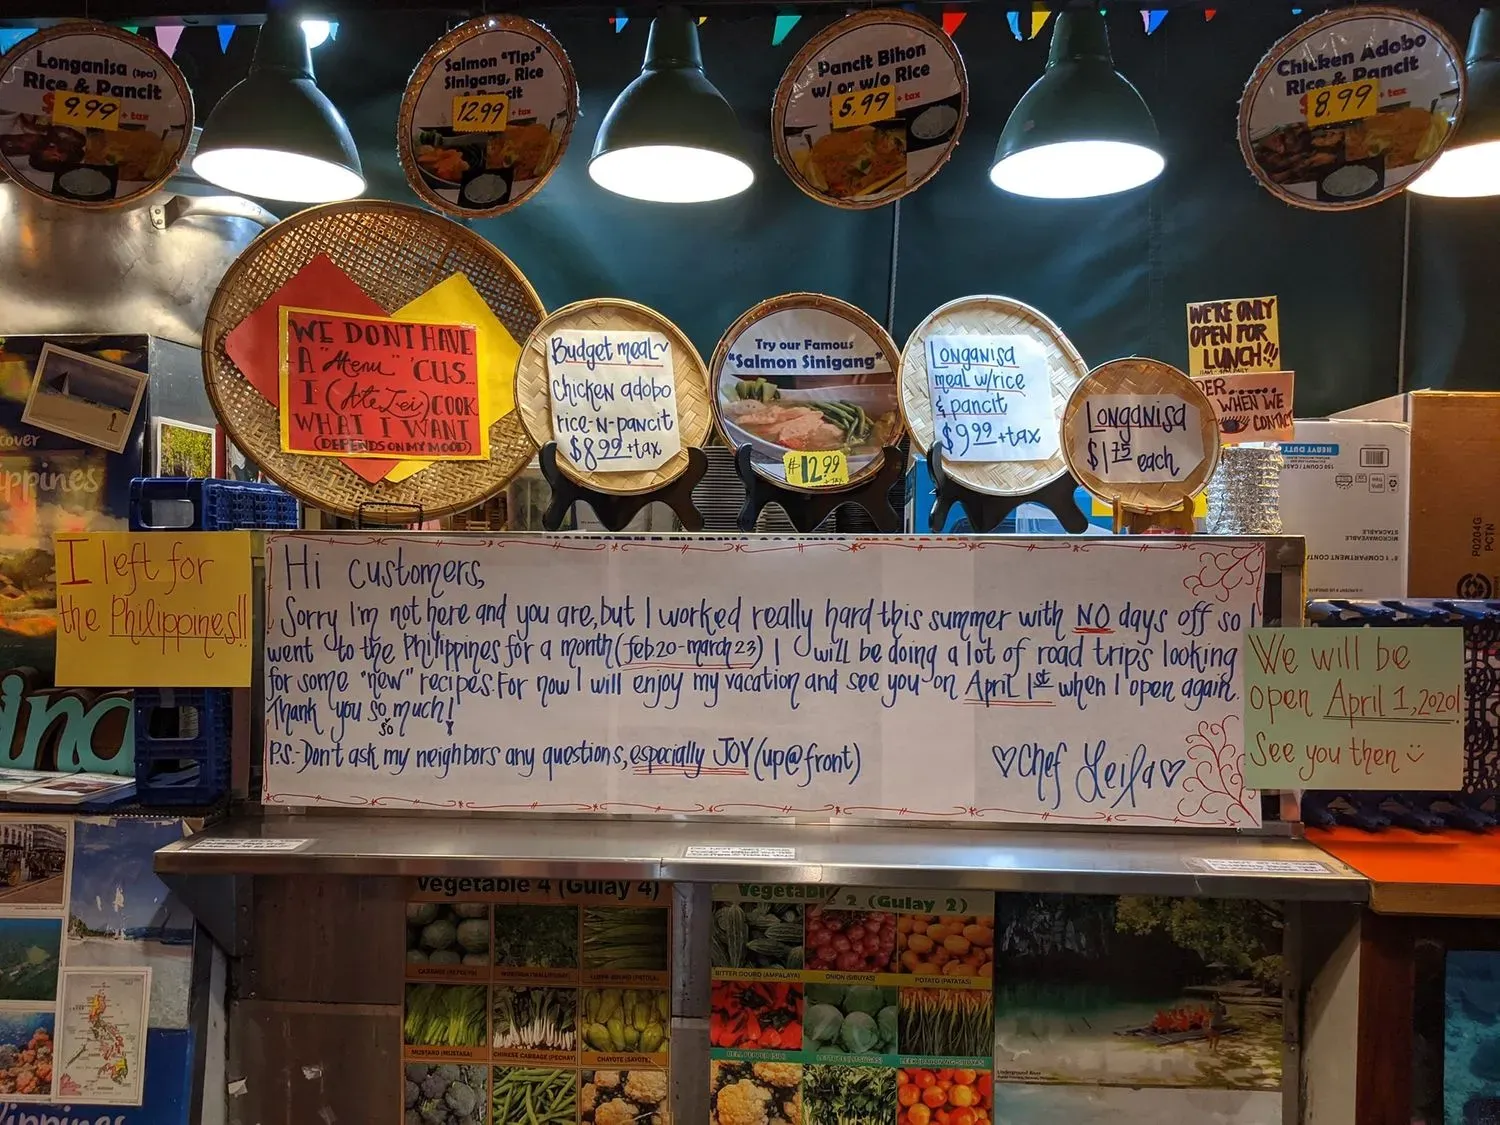 Longanisa (3pcs)
Rice & Pancit
$9.99 + tax
Salmon "Tips"
Sinigang, Rice
& Pancit
12.99 + tax
Pancit Bihon
w/ or w/o Rice
5.99 + tax
Chicken Adobo
Rice & Pancit
$8.99 + tax
WE DON'T HAVE
A "Menu" 'CUS...
I (Ate Lei) COOK
WHAT I WANT
(DEPENDS ON MY MOOD)
Budget meal~
chicken adobo
rice-n-pancit
$8.99 + tax
Try our Famous
"Salmon Sinigang"
12.99
+ TAX
Longanisa
meal w/rice
& pancit
$9.99 + tax
Longanisa
$1.75 each
WE'RE ONLY
OPEN FOR
LUNCH!!!
WHEN WE
CONTACT
HEAVY DUTY
P0204G
PCTN
I left for
the Philippines!!
Hi customers,
Sorry I'm not here and you are, but I worked really hard this summer with NO days off so I
went to the Philippines for a month (feb 20-march 23) I will be doing a lot of road trips looking
for some "new" recipes. For now I will enjoy my vacation and see you on April 1st when I open again.
Thank you so so much!
P.S.- Don't ask my neighbors any questions, especially JOY (up@front)
♡Chef Leila♡
We will be
open April 1, 2020!
See you then
ippines
Vegetable 4 (Gulay 4)
CABBAGE (REPOLYO)
MUSTARD (MUSTASA)
CHINESE CABBAGE (PECHAY)
CHAYOTE (SAYOTE)
Vegetable 2 (Gulay 2)
BITTER GOURD (AMPALAYA)
ONION (SIBUYAS)
POTATO (PATATAS)
BELL PEPPER (SILI)
LETTUCE (LITSUGAS)
Underground River